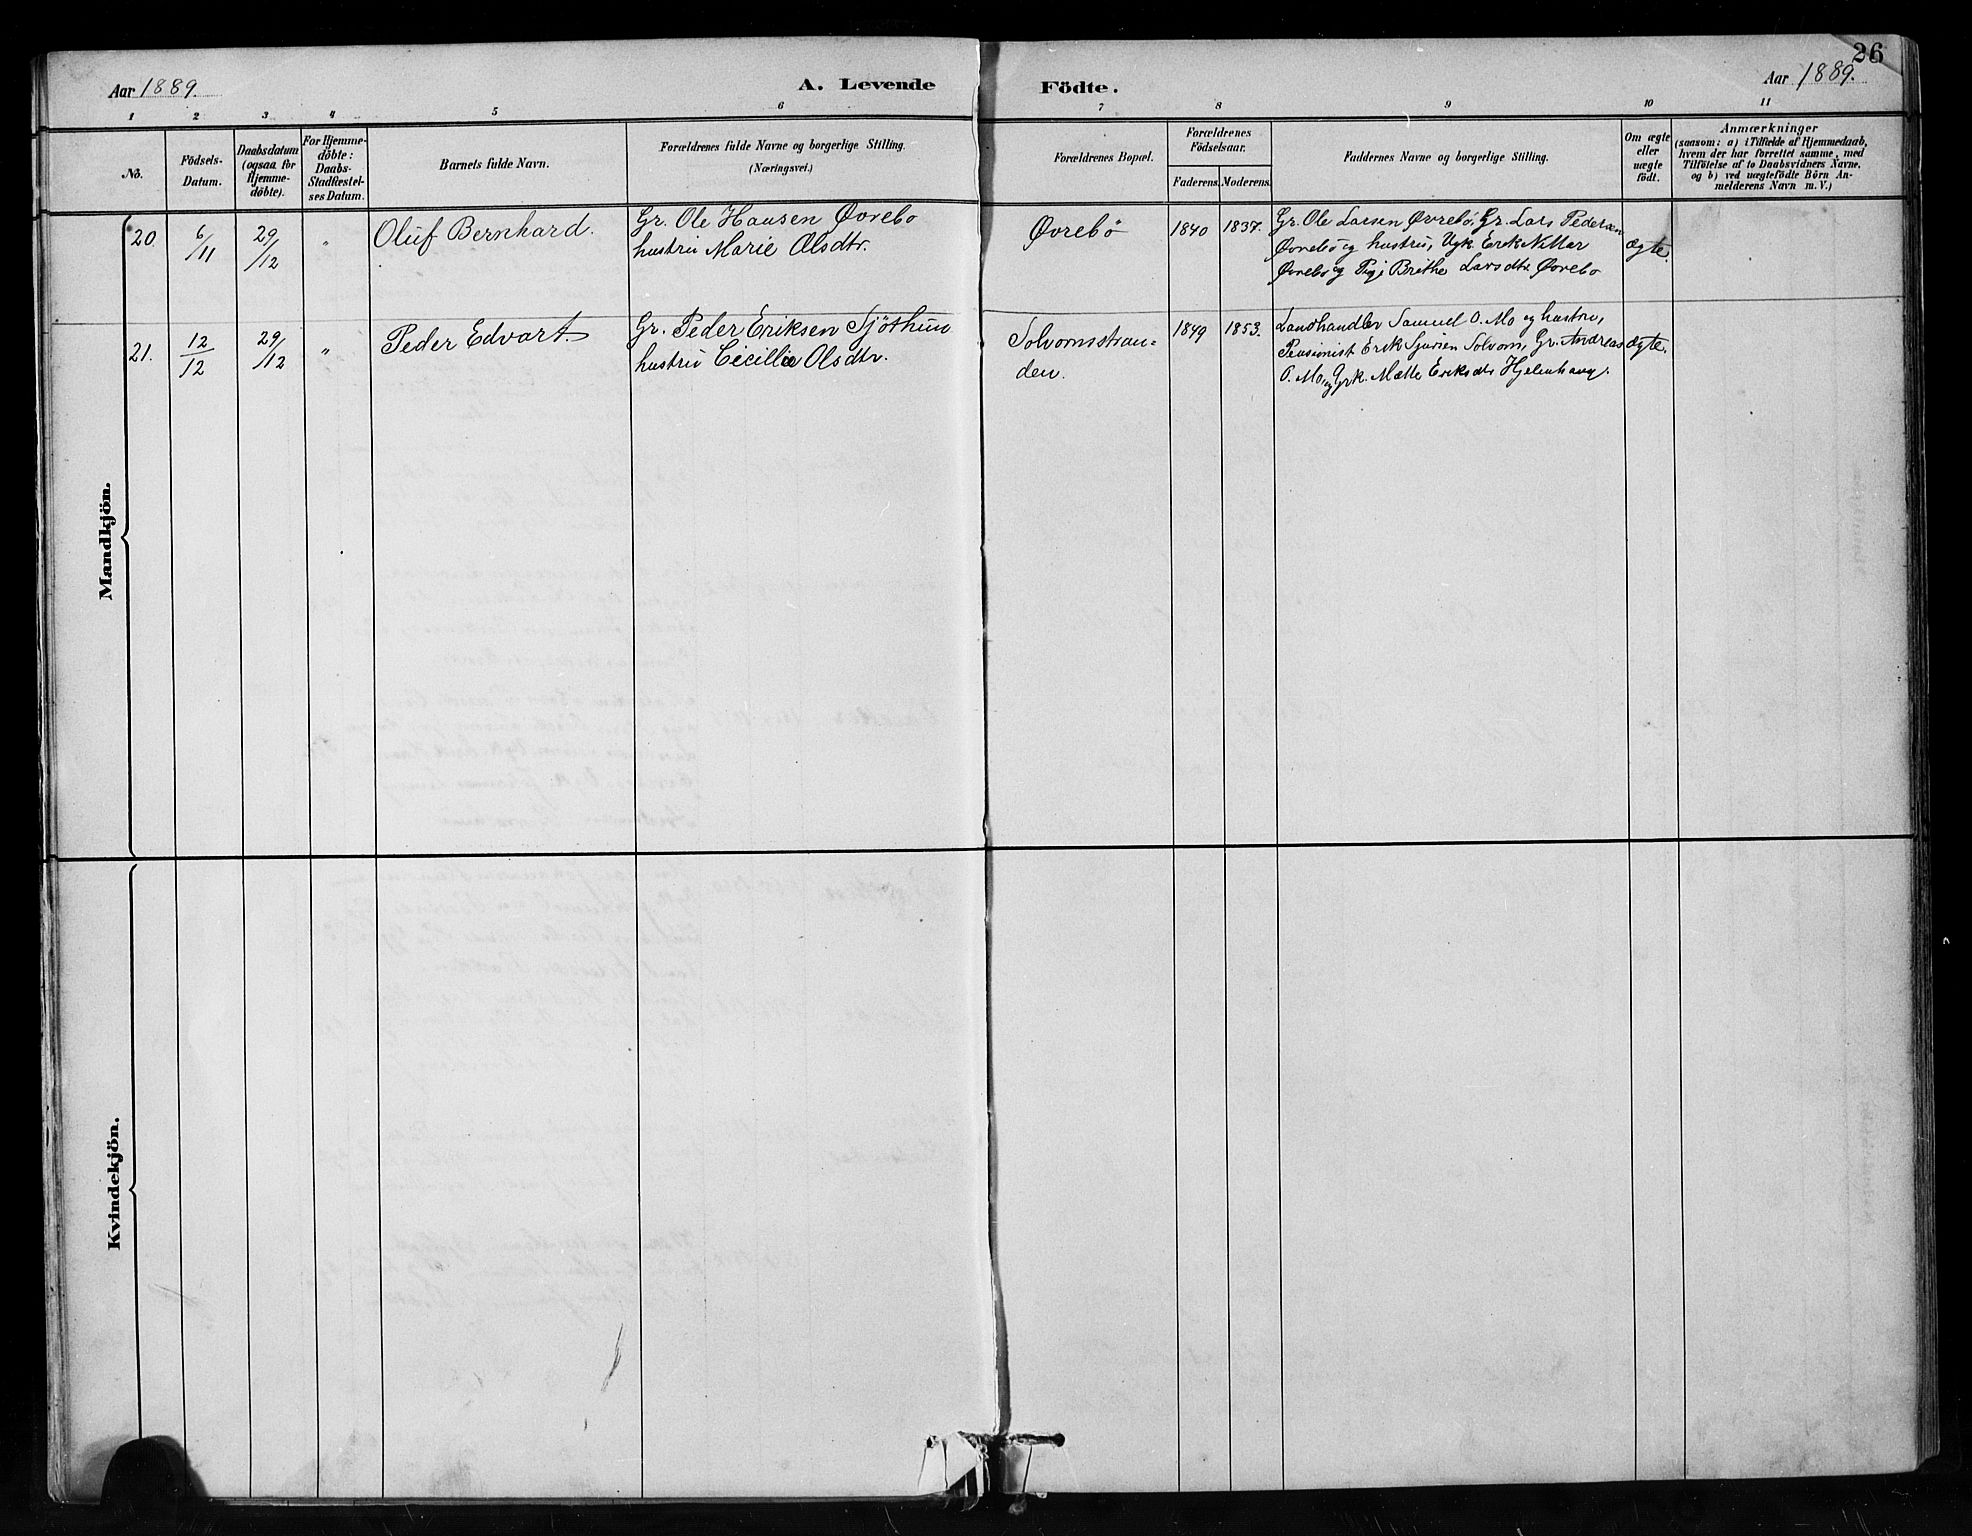 26
Aar 1889.
A. Levende
Födte.
Aar 1889.
1 2 3 4 5 6 7 8 9 10 11
No.
Födsels-
Datum.
Daabsdatum
(ogsaa for
Hjemme-
döbte).
For Hjemme-
döbte:
Daabs-
Stadfæstel-
ses Datum.
Barnets fulde Navn.
Forældrenes fulde Navne og borgerlige Stilling.
(Næringsvei.)
Forældrenes Bopæl.
Forældrenes
Födselsaar.
Faderens. Moderens.
Faddernes Navne og borgerlige Stilling.
Om ægte
eller
uægte
født.
Anmærkninger
(saasom: a) i Tilfælde af Hjemmedaab,
hvem der har forrettet samme, med
Tilföielse af to Daabsvidners Navne,
og b) ved uægtefödte Börn An-
melderens Navn m. V.)
Mandkjön.
20. 6/11 29/12 " Oluf Bernhard.
Gr. Ole Hansen Øvrebø
hustru Marie Olsdtr.
Øvrebö 1840 1837.
Gr. Ole Larsen Øvrebø, Gr. Lars Pedersen
Øvrebø og hustru, Ugk. Erik Nitter
Øvrebø og Pige Brithe Larsdtr Øvrebø
ægte.
21. 12/12 29/12 " Peder Edvart.
Gr. Peder Eriksen Sjöthun
hustru Cecillia Olsdtr.
Solvornsstran-
den.
1849 1853.
Landhandler Samuel O. Mo og hustru,
Pensionist Erik Sjursen Solvorn, Gr. Andreas
O. Mo og Grk. Mætte Eriksdtr
ægte.
Kvindekjön.